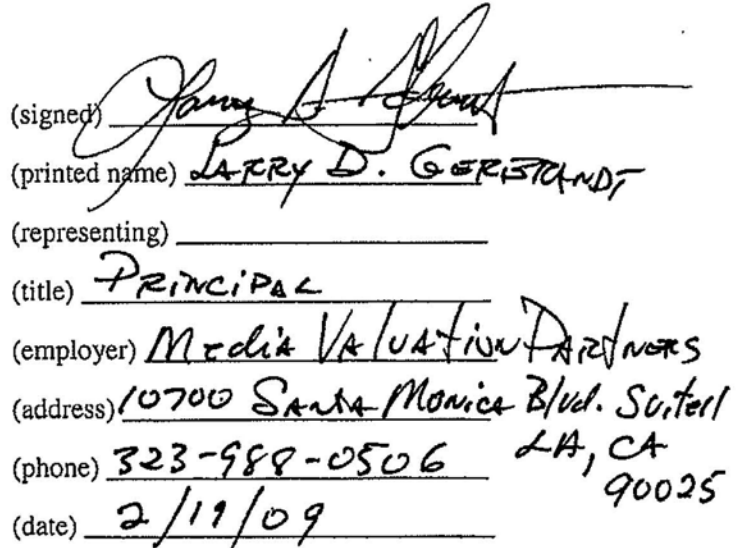 (signed)
(printed name) LARRY D. GERBRANDT
(representing)
(title) PRINCIPAL
(employer) Media Valuation Partners
(address) 10700 Santa Monica Blvd. Suite 11
LA, CA
(phone) 323-988-0506
90025
(date) 2/19/09